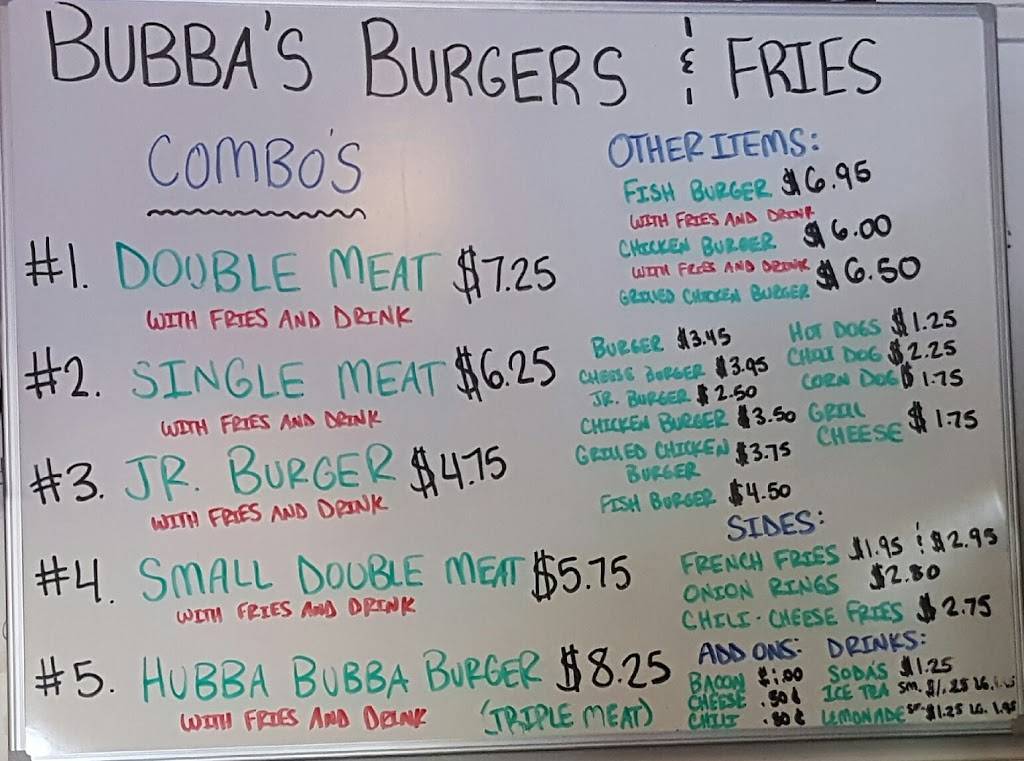 BUBBA'S BURGERS & FRIES
COMBO'S
#1. DOUBLE MEAT $7.25
WITH FRIES AND DRINK
#2. SINGLE MEAT $6.25
WITH FRIES AND DRINK
#3. JR. BURGER $4.75
WITH FRIES AND DRINK
#4. SMALL DOUBLE MEAT $5.75
WITH FRIES AND DRINK
#5. HUBBA BUBBA BURGER $8.25
WITH FRIES AND DRINK (TRIPLE MEAT)
OTHER ITEMS:
FISH BURGER $6.95
WITH FRIES AND DRINK
CHICKEN BURGER $6.00
WITH FRIES AND DRINK
GRILLED CHICKEN BURGER $6.50
BURGER $3.45
CHEESE BURGER $3.95
JR. BURGER $2.50
CHICKEN BURGER $3.50
GRILLED CHICKEN $3.75
BURGER
FISH BURGER $4.50
HOT DOGS $1.25
CHILI DOG $2.25
CORN DOG $1.75
GRILL
CHEESE $1.75
SIDES:
FRENCH FRIES $1.95 & $2.95
ONION RINGS $2.80
CHILI-CHEESE FRIES $2.75
ADD ONS:
BACON $1.00
CHEESE .50¢
CHILI .50¢
DRINKS:
SODA'S $1.25
ICE TEA SM. $1.25 LG.
LEMONADE $1.25 LG. 1.95